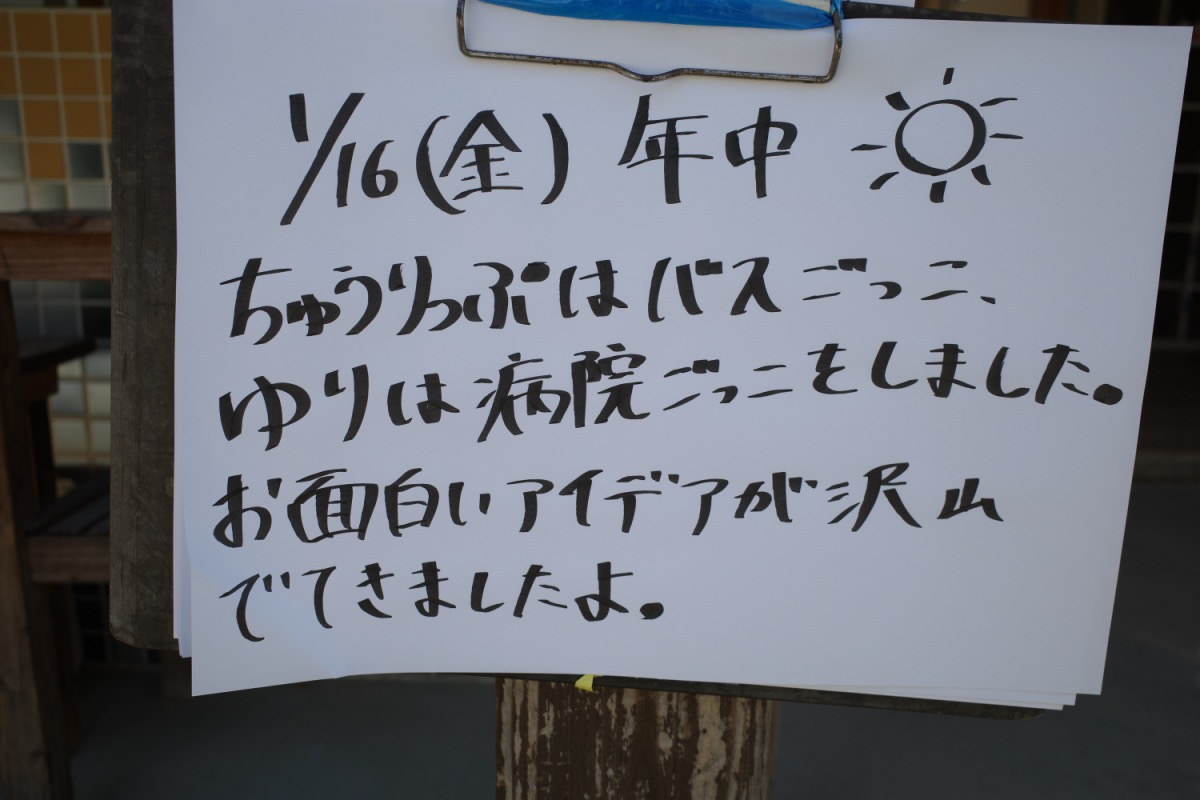 1/16(金) 年中
ちゅうりっぷはバスごっこ、
ゆりは病院ごっこをしました。
お面白いアイデアが沢山
でてきましたよ。